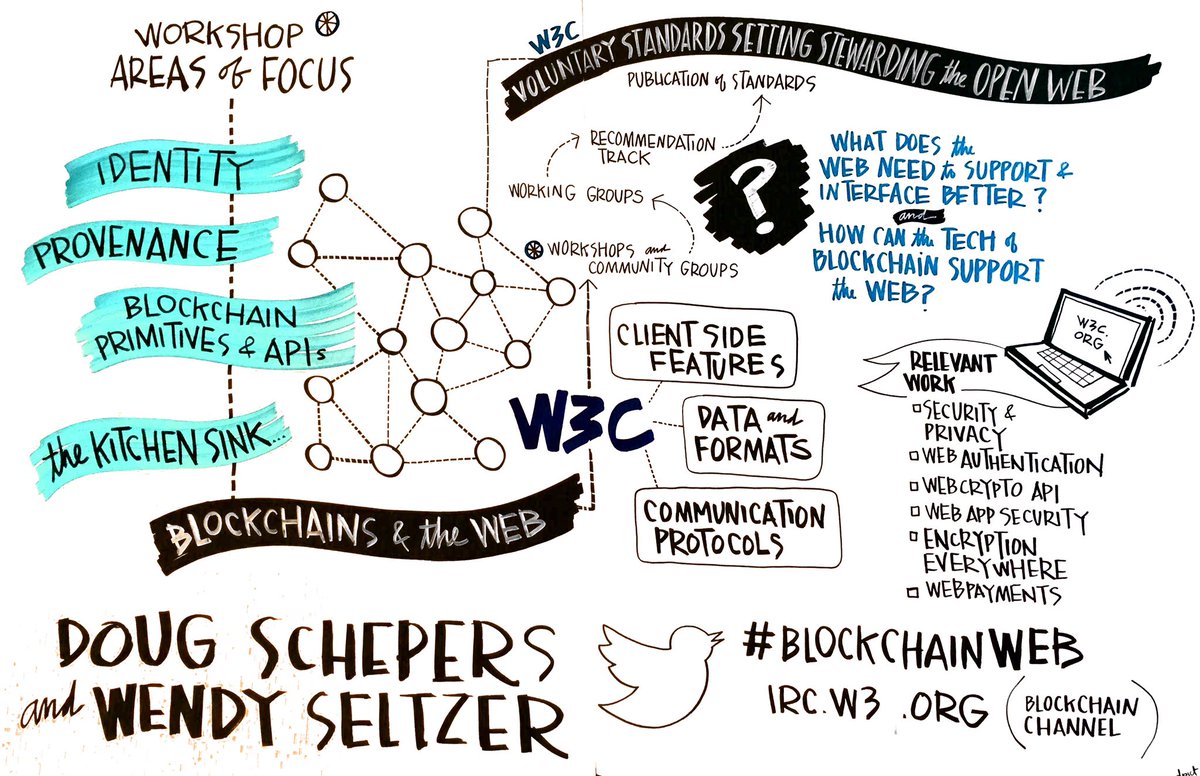 WORKSHOP
AREAS of FOCUS
IDENTITY
PROVENANCE
BLOCKCHAIN
PRIMITIVES & APIs
the KITCHEN SINK...
BLOCKCHAINS & the WEB
W3C
VOLUNTARY STANDARDS SETTING STEWARDING the OPEN WEB
PUBLICATION of STANDARDS
RECOMMENDATION
TRACK
WORKING GROUPS
WORKSHOPS and
COMMUNITY GROUPS
?
WHAT DOES the
WEB NEED to SUPPORT &
INTERFACE BETTER?
and
HOW CAN the TECH of
BLOCKCHAIN SUPPORT
the WEB?
W3C
CLIENT SIDE
FEATURES
DATA and
FORMATS
COMMUNICATION
PROTOCOLS
W3C.
ORG
RELEVANT
WORK
SECURITY &
PRIVACY
WEB AUTHENTICATION
WEB CRYPTO API
WEB APP SECURITY
ENCRYPTION
EVERYWHERE
WEB PAYMENTS
DOUG SCHEPERS
and WENDY SELTZER
#BLOCKCHAINWEB
IRC.W3.ORG
(BLOCKCHAIN
CHANNEL)